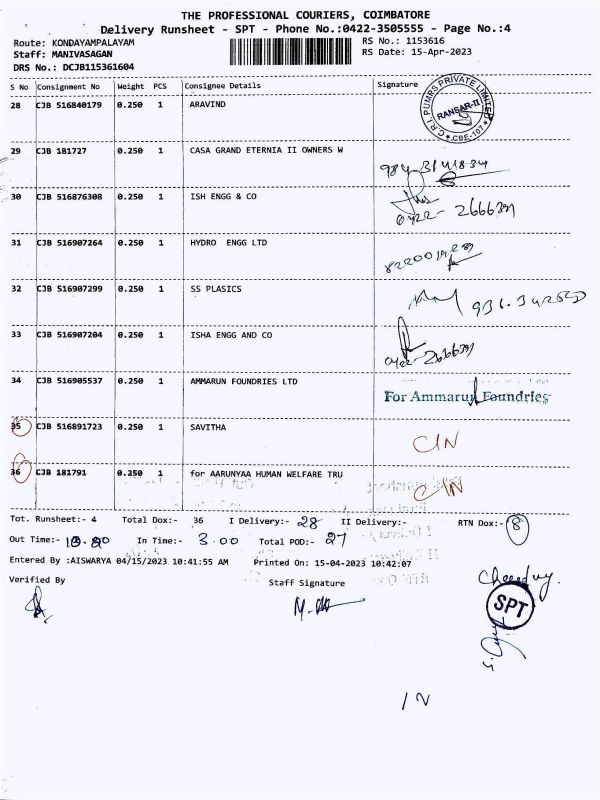 THE PROFESSIONAL COURIERS, COIMBATORE
Delivery Runsheet - SPT - Phone No.:0422-3505555 - Page No.:4
Route: KONDAYAMPALAYAM RS No.: 1153616
Staff: MANIVASAGAN RS Date: 15-Apr-2023
DRS No.: DCJB115361604
S No Consignment No Weight PCS Consignee Details Signature
28 CJB 516840179 0.250 1 ARAVIND
C.R.I. PUMPS PRIVATE LIMITED RANSAR-II CBE-107
29 CJB 181727 0.250 1 CASA GRAND ETERNIA II OWNERS W
30 CJB 516876308 0.250 1 ISH ENGG & CO
0422- 2666391
31 CJB 516907264 0.250 1 HYDRO ENGG LTD
32 CJB 516907299 0.250 1 SS PLASICS
33 CJB 516907204 0.250 1 ISHA ENGG AND CO
0422-2666391
34 CJB 516905537 0.250 1 AMMARUN FOUNDRIES LTD For Ammarun Foundries
35 CJB 516891723 0.250 1 SAVITHA C/N
36 CJB 181791 0.250 1 for AARUNYAA HUMAN WELFARE TRU C/N
Tot. Runsheet:- 4 Total Dox:- 36 I Delivery:- 28 II Delivery:- RTN Dox:- 8
Out Time:- In Time:- 3.00 Total POD:- 27
Entered By :AISWARYA 04/15/2023 10:41:55 AM Printed On: 15-04-2023 10:42:07
Verified By Staff Signature
SPT